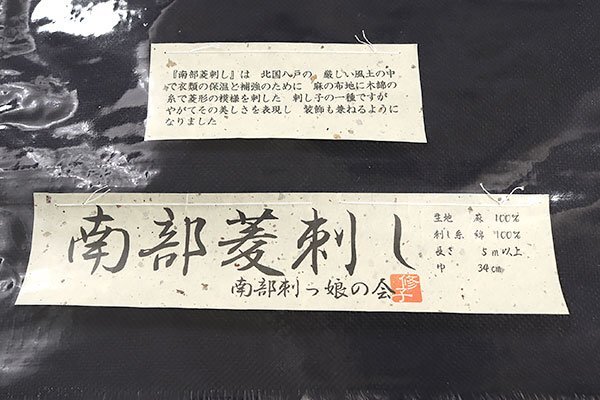 『南部菱刺し』は　北国八戸の　厳しい風土の中
で衣類の保温と補強のために　麻の布地に木綿の
糸で菱形の模様を刺した　刺し子の一種ですが
やがてその美しさを表現し　装飾も兼ねるように
なりました
南部菱刺し
南部刺っ娘の会
修子
生地　麻　100%
刺し糸　綿　100%
長さ　5m以上
巾　34cm